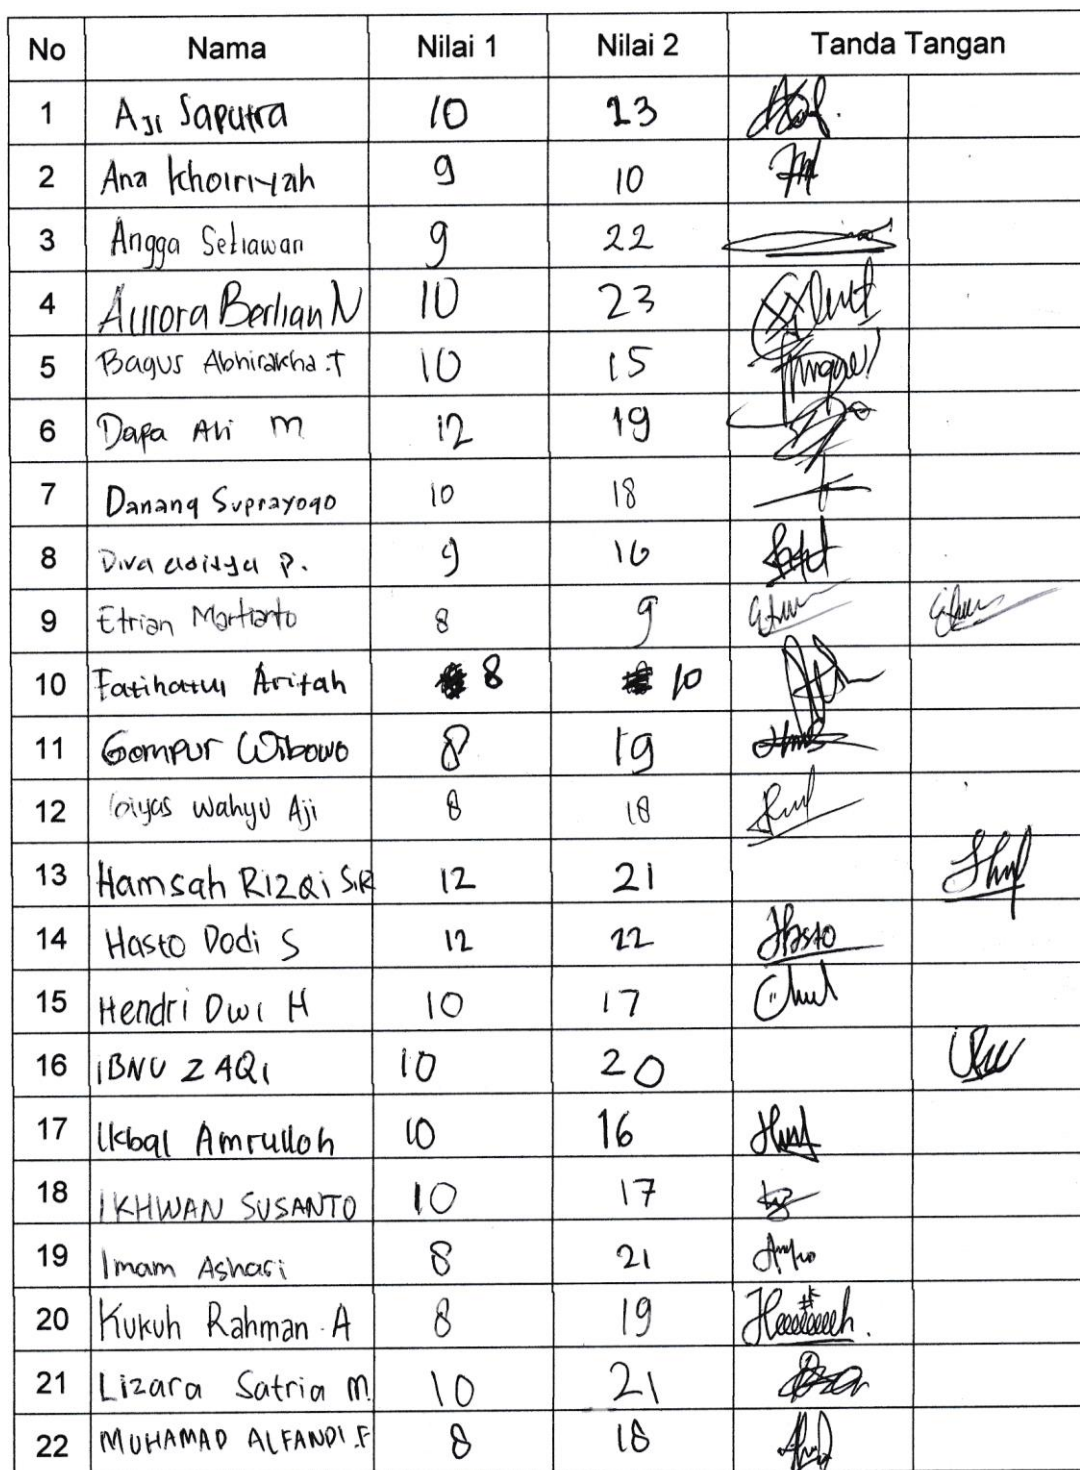 No Nama Nilai 1 Nilai 2 Tanda Tangan
1 Aji Saputra 10 23
2 Ana Khoiriyah 9 10
3 Angga Setiawan 9 22
4 Aurora Berlian N 10 23
5 Bagus Abhirakha.T 10 15
6 Dafa Ali M 12 19
7 Danang Suprayogo 10 18
8 Diva aditya P. 9 16
9 Etrian Martianto 8 9
10 Fatihatul Arifah 8 10
11 Gempur Wibowo 8 19
12 Giyas Wahyu Aji 8 18
13 Hamsah RIZQi S.R 12 21
14 Hasto Dodi S 12 22 Hasto
15 Hendri Dwi H 10 17
16 IBNU ZAQI 10 20
17 Ikbal Amrulloh 10 16
18 IKHWAN SUSANTO 10 17
19 Imam Ashari 8 21
20 Kukuh Rahman.A 8 19
21 Lizara Satria M. 10 21
22 MUHAMAD ALFANDI.F 8 18